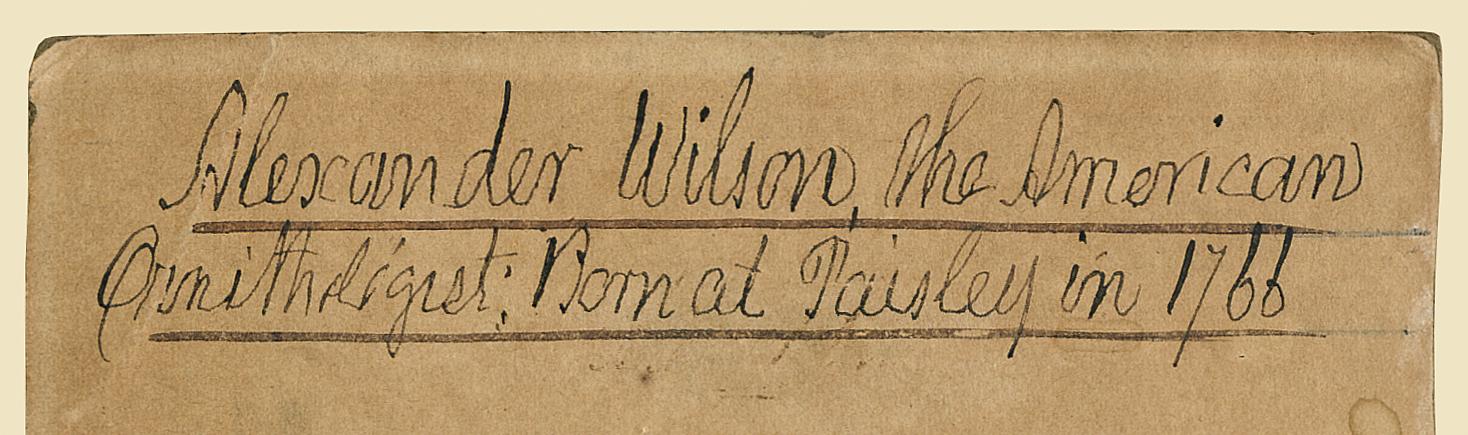 Alexander Wilson, the American
Ornithologist: Born at Paisley in 1766